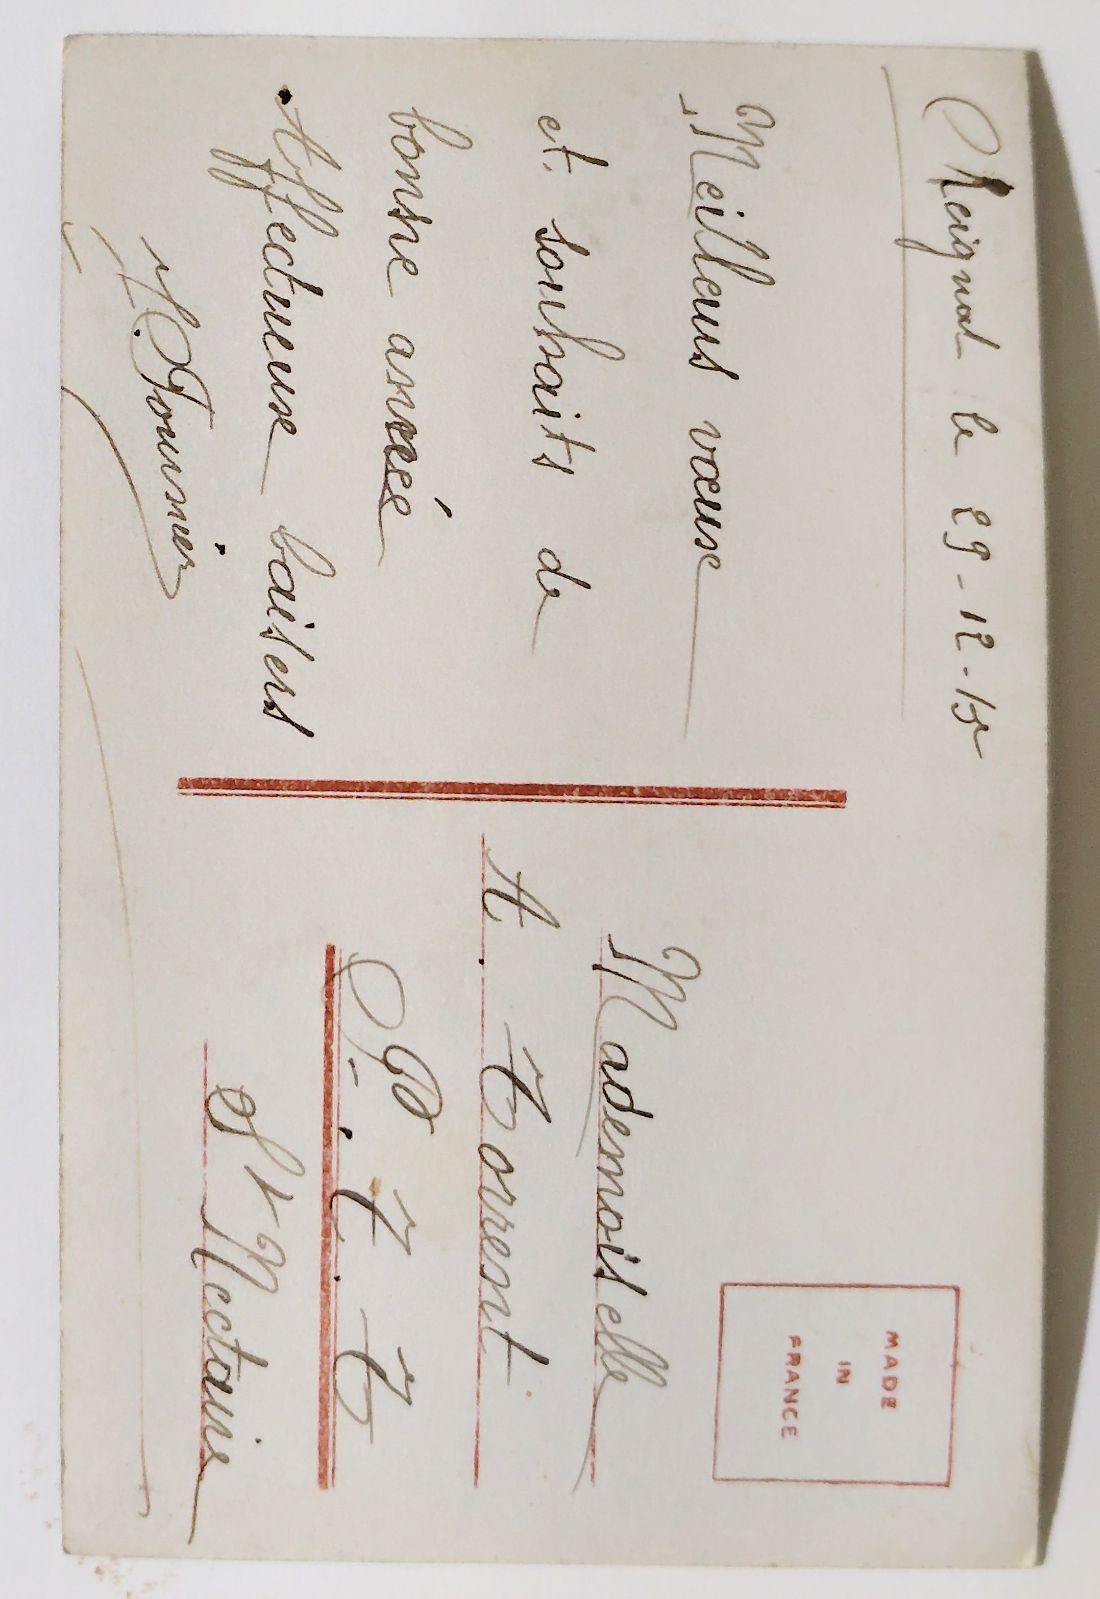 Reignat le 29-12-15
Meilleurs vœux
et souhaits de
bonne année
Affectueux baisers
M. Fournier
MADE
IN
FRANCE
Mademoiselle
A. Torrent
P. T. T
St Nectaire